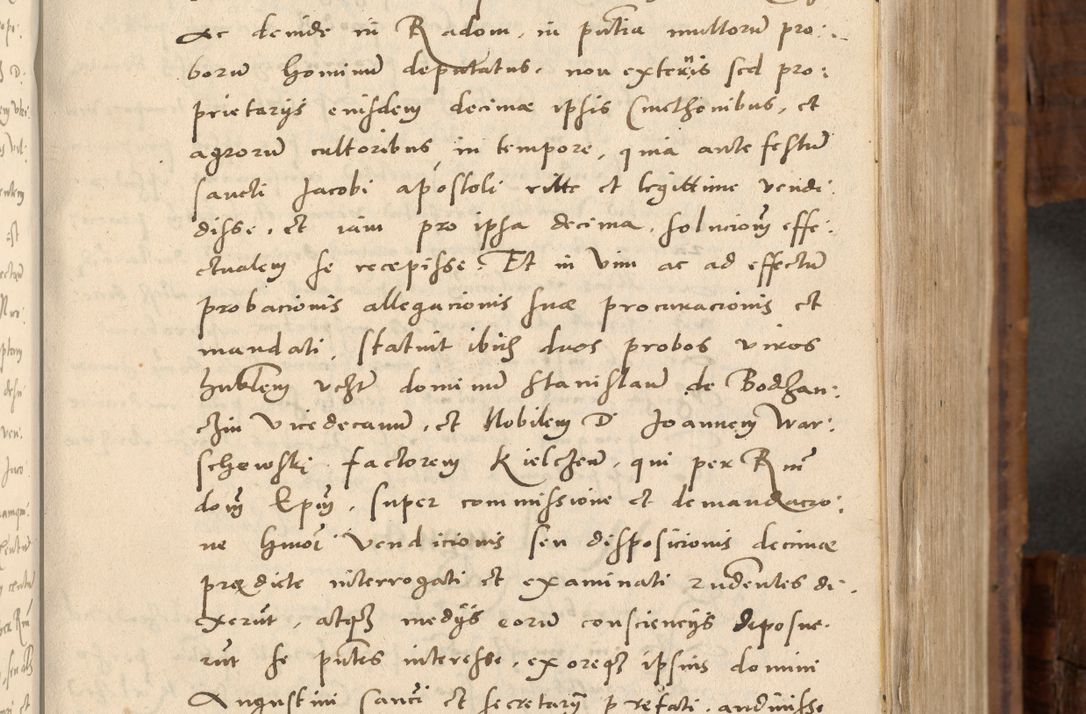 Ac deinde in Radom, in pñtia multorũ pro:
borũ hominũ deputatus, non exteris sed pro:
prietariis eiusdem decimæ ipsis Cmethonibus, et
agrorũ cultoribus, in tempore, quia ante festũ
sancti Jacobi apostoli ritte et legittime vendi:
disse, et iam pro ipsa decima, solucioñ effe:
ctualem se recepisse. Et in vim ac ad effectũ
probacionis allegacionis suæ procuracionis et
mandati, statuit ibid duos probos viros
hublem vchũ dominũ Stanislaũ de Bodzan:
thin Vicedecanũ, et Nobilem D Joannem War:
schowski factorem Kielczeñ, qui per Rm̃
dom̃ Epm̃, super commissione et demandacio:
ne hmoi vendicionis seu disposicionis decimæ
prædicte interrogati et examinati rudentes di:
xerũt, atqz mediis eorũ consciencijs deposue:
rũt se pñtes interesse, ex oreqz ipsius domini
Augustini Sancti et secretarij prefati, audiuisse